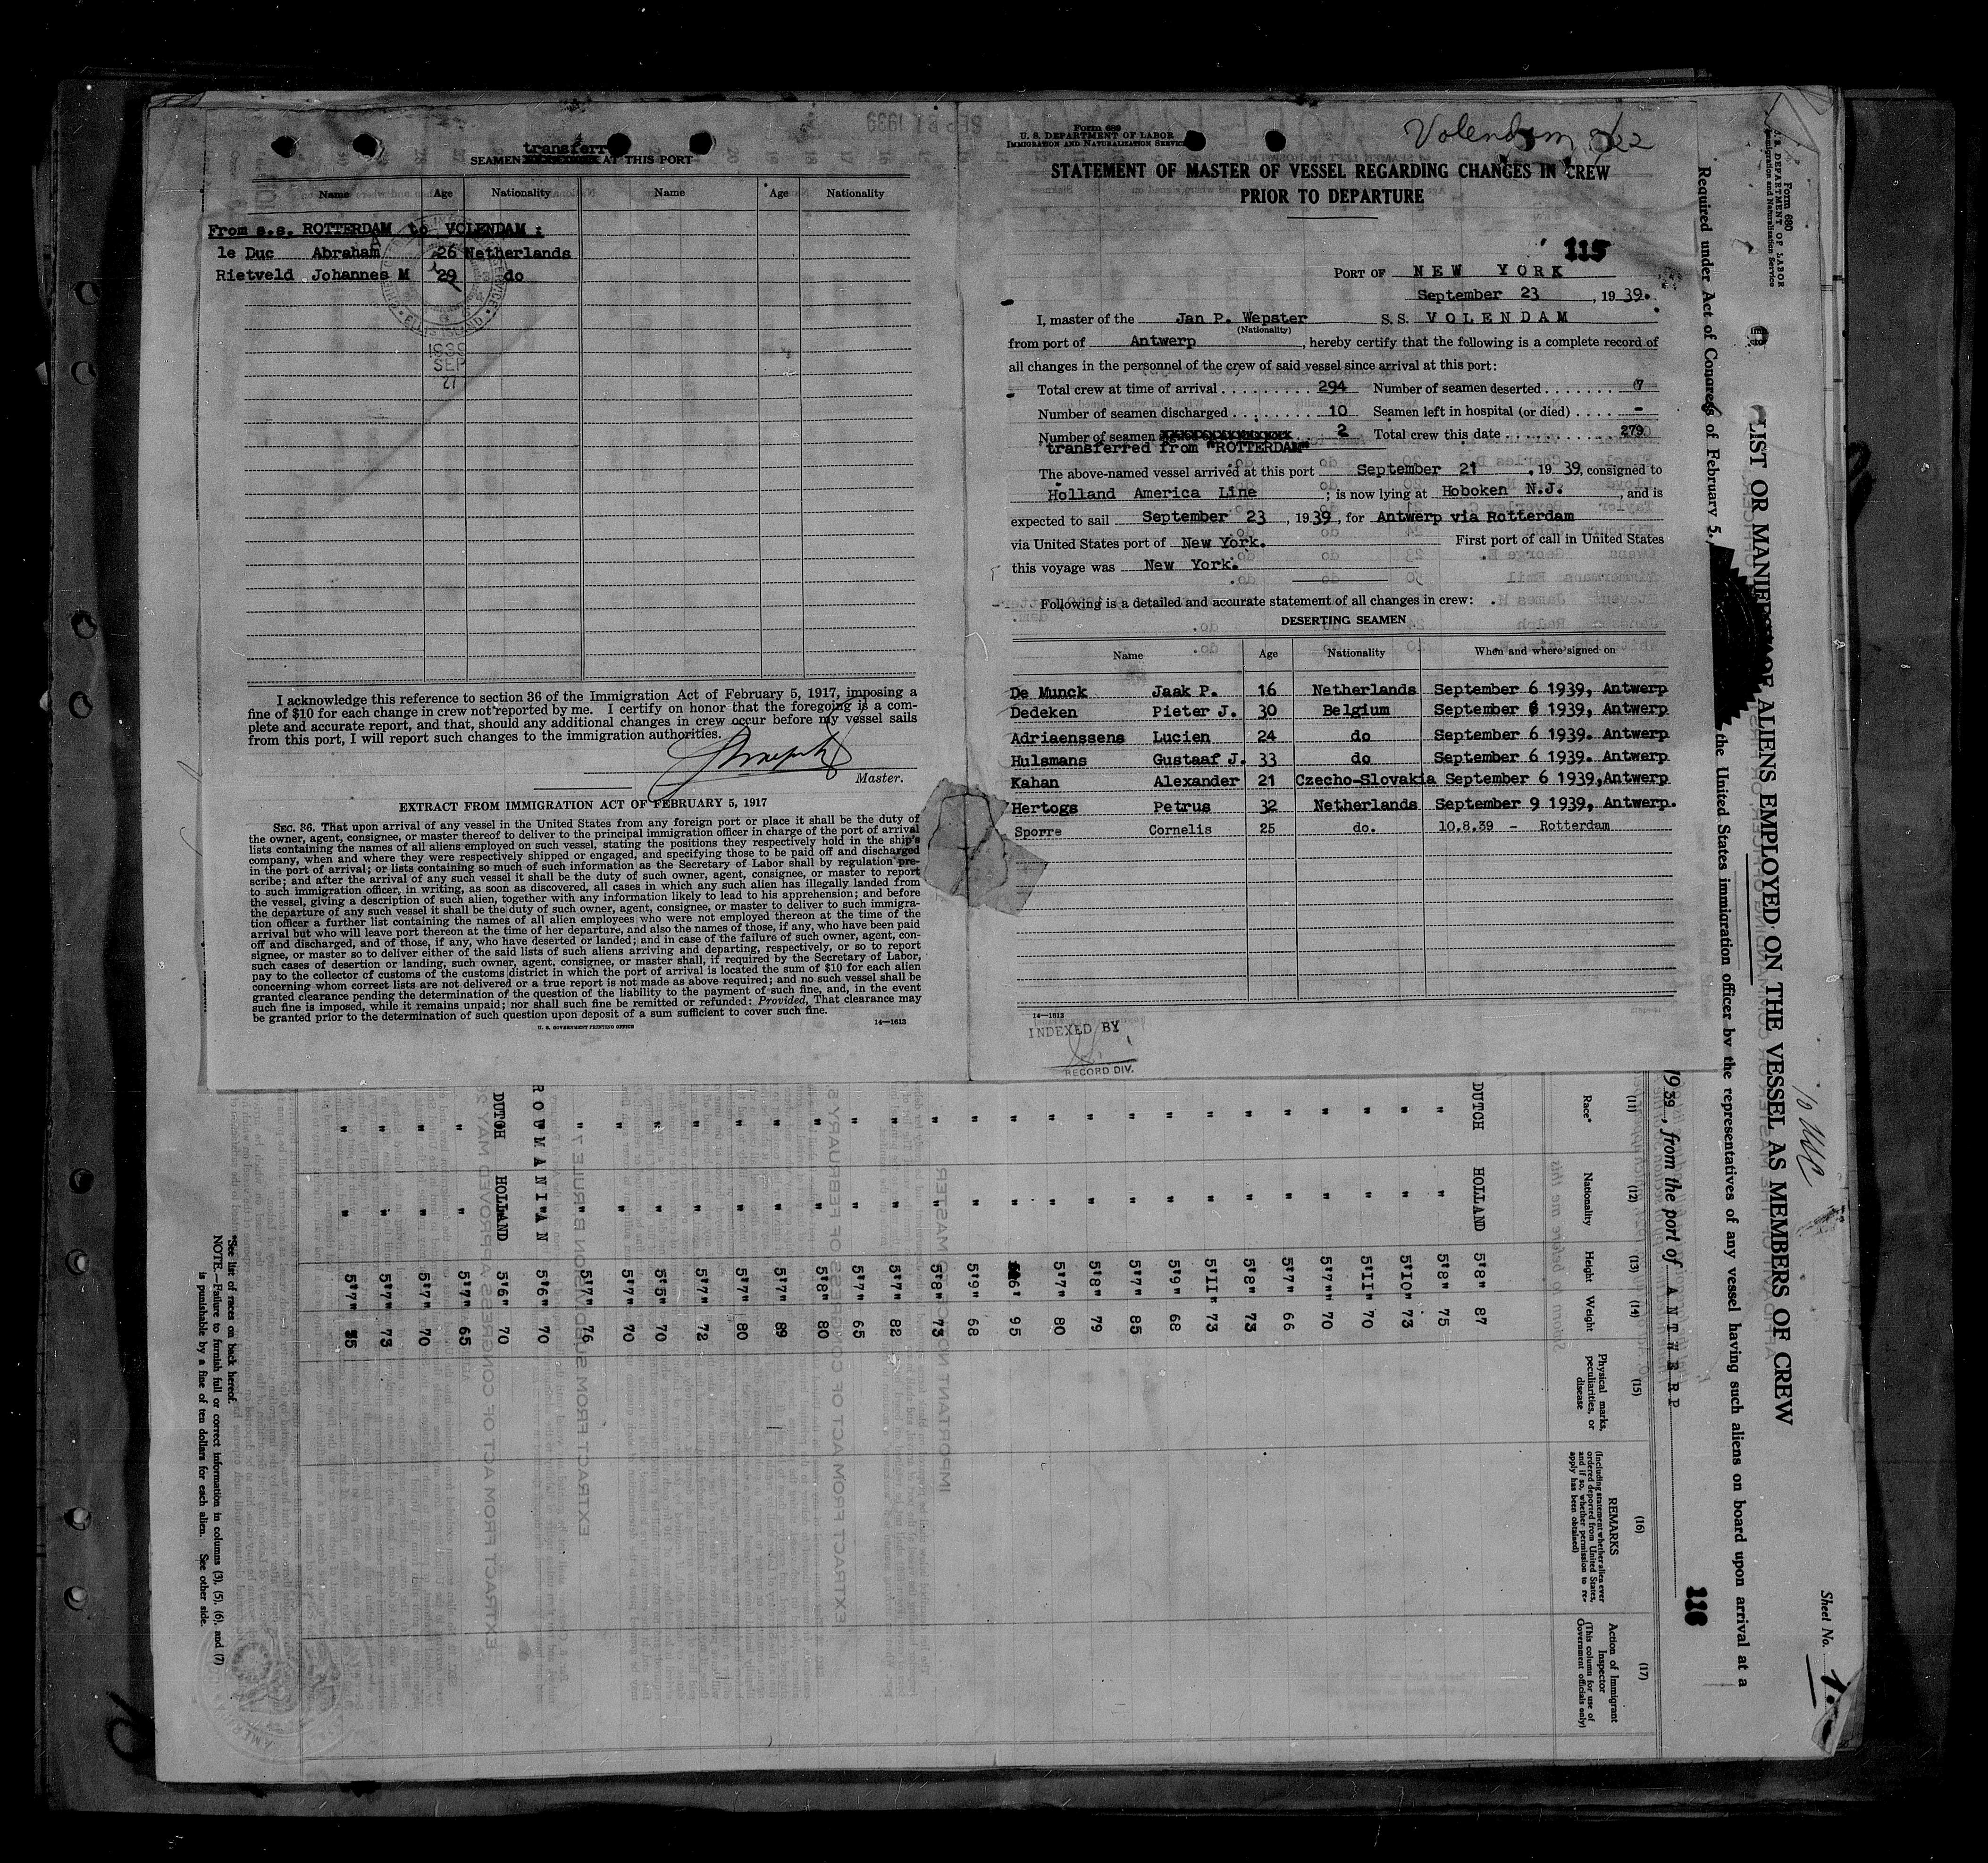 transferr
SEAMEN AT THIS PORT
Name Age Nationality Name Age Nationality
From s.s. ROTTERDAM to VOLENDAM :
le Duc Abraham 26 Netherlands
Rietveld Johannes M 29 do
1939
SEP
27
I acknowledge this reference to section 36 of the Immigration Act of February 5, 1917, imposing a
fine of $10 for each change in crew not reported by me. I certify on honor that the foregoing is a com-
plete and accurate report, and that, should any additional changes in crew occur before my vessel sails
from this port, I will report such changes to the immigration authorities.
Master.
EXTRACT FROM IMMIGRATION ACT OF FEBRUARY 5, 1917
SEC. 36. That upon arrival of any vessel in the United States from any foreign port or place it shall be the duty of
the owner, agent, consignee, or master thereof to deliver to the principal immigration officer in charge of the port of arrival
lists containing the names of all aliens employed on such vessel, stating the positions they respectively hold in the ship's
company, when and where they were respectively shipped or engaged, and specifying those to be paid off and discharged
in the port of arrival; or lists containing so much of such information as the Secretary of Labor shall by regulation pre-
scribe; and after the arrival of any such vessel it shall be the duty of such owner, agent, consignee, or master to report
to such immigration officer, in writing, as soon as discovered, all cases in which any such alien has illegally landed from
the vessel, giving a description of such alien, together with any information likely to lead to his apprehension; and before
the departure of any such vessel it shall be the duty of such owner, agent, consignee, or master to deliver to such immigra-
tion officer a further list containing the names of all alien employees who were not employed thereon at the time of the
arrival but who will leave port thereon at the time of her departure, and also the names of those, if any, who have been paid
off and discharged, and of those, if any, who have deserted or landed; and in case of the failure of such owner, agent, con-
signee, or master so to deliver either of the said lists of such aliens arriving and departing, respectively, or so to report
such cases of desertion or landing, such owner, agent, consignee, or master shall, if required by the Secretary of Labor,
pay to the collector of customs of the customs district in which the port of arrival is located the sum of $10 for each alien
concerning whom correct lists are not delivered or a true report is not made as above required; and no such vessel shall be
granted clearance pending the determination of the question of the liability to the payment of such fine, and, in the event
such fine is imposed, while it remains unpaid; nor shall such fine be remitted or refunded: Provided, That clearance may
be granted prior to the determination of such question upon deposit of a sum sufficient to cover such fine.
U. S. GOVERNMENT PRINTING OFFICE 14—1613
Form 689
U. S. DEPARTMENT OF LABOR
IMMIGRATION AND NATURALIZATION SERVICE
Volendam 9/22
STATEMENT OF MASTER OF VESSEL REGARDING CHANGES IN CREW
PRIOR TO DEPARTURE
115
PORT OF NEW YORK
September 23, 1939.
I, master of the Jan P. Wepster S.S. VOLENDAM
(Nationality)
from port of Antwerp, hereby certify that the following is a complete record of
all changes in the personnel of the crew of said vessel since arrival at this port:
Total crew at time of arrival 294 Number of seamen deserted 7
Number of seamen discharged 10 Seamen left in hospital (or died) -
Number of seamen 2 Total crew this date 279
transferred from "ROTTERDAM"
The above-named vessel arrived at this port September 21, 1939, consigned to
Holland America Line; is now lying at Hoboken N.J., and is
expected to sail September 23, 1939, for Antwerp via Rotterdam
via United States port of New York. First port of call in United States
this voyage was New York.
Following is a detailed and accurate statement of all changes in crew:
DESERTING SEAMEN
Name Age Nationality When and where signed on
De Munck Jaak P. 16 Netherlands September 6 1939, Antwerp
Dedeken Pieter J. 30 Belgium September 6 1939, Antwerp
Adriaenssens Lucien 24 do September 6 1939. Antwerp
Hulsmans Gustaaf J. 33 do September 6 1939. Antwerp
Kahan Alexander 21 Czecho-Slovakia September 6 1939, Antwerp
Hertogs Petrus 32 Netherlands September 9 1939, Antwerp.
Sporre Cornelis 25 do. 10.8.39 - Rotterdam
14—1613
INDEXED BY
RECORD DIV.
Form 680
U. S. DEPARTMENT OF LABOR
Immigration and Naturalization Service
Sheet No. 1.
LIST OR MANIFEST OF ALIENS EMPLOYED ON THE VESSEL AS MEMBERS OF CREW
Required under Act of Congress of February 5, the United States immigration officer by the representatives of any vessel having such aliens on board upon arrival at a
1939, from the port of ANTWERP
116
(11) (12) (13) (14) (15) (16) (17)
Race* Nationality Height Weight Physical marks, peculiarities, or disease
REMARKS
(Including statement whether alien ever ordered deported from United States, and if so, whether permission to re-apply has been obtained)
Action of Immigrant Inspector
(This column for use of Government officials only)
DUTCH HOLLAND 5'8" 87
" " 5'8" 75
" " 5'10" 73
" " 5'11" 70
" " 5'7" 70
" " 5'7" 66
" " 5'8" 73
" " 5'11" 73
" " 5'9" 68
" " 5'7" 85
" " 5'8" 79
" " 5'7" 80
" " 6' 95
" " 5'9" 68
" " 5'8" 73
" " 5'7" 82
" " 5'7" 65
" " 5'8" 80
" " 5'7" 89
" " 5'7" 80
" " 5'7" 72
" " 5'5" 70
" " 5'7" 70
" " 5'7" 76
ROUMANIAN 5'6" 70
DUTCH HOLLAND 5'6" 70
" " 5'7" 65
" " 5'7" 70
" " 5'7" 73
" " 5'7"
*See list of races on back hereof.
NOTE.—Failure to furnish full or correct information in columns (3), (5), (6), and (7)
is punishable by a fine of ten dollars for each alien. See other side.